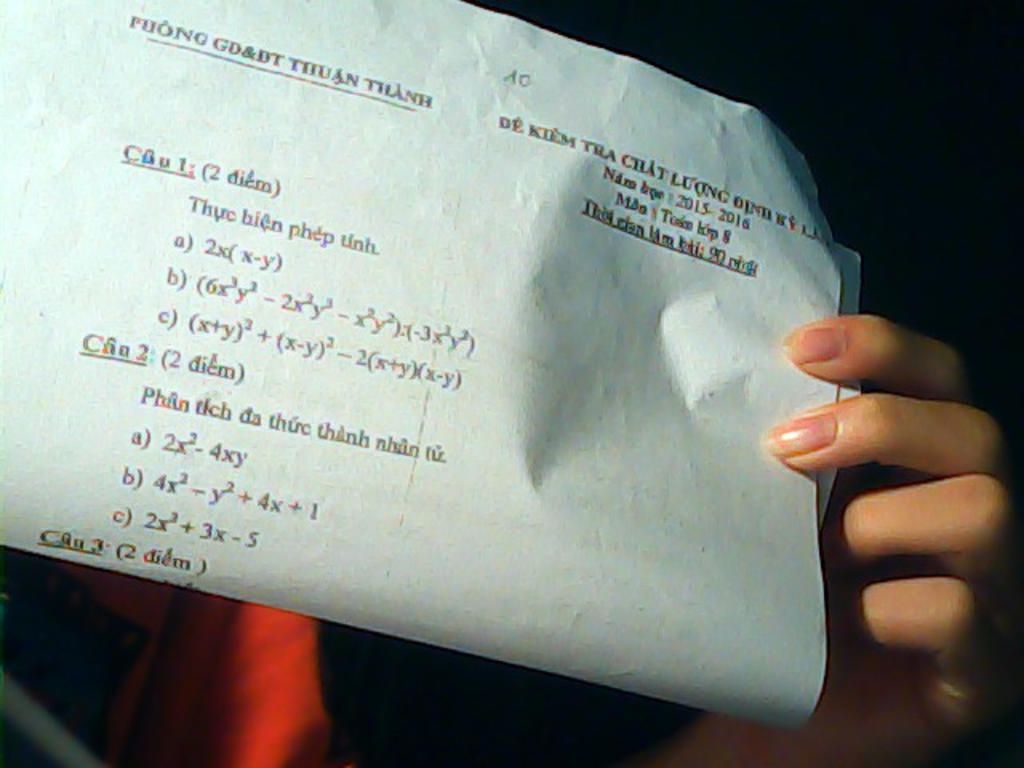 PHÒNG GD&ĐT THUẬN THÀNH
10
ĐỀ KIỂM TRA CHẤT LƯỢNG ĐỊNH KỲ
Năm học : 2015- 2016
Môn : Toán lớp 8
Thời gian làm bài: 90 phút
Câu 1: (2 điểm)
Thực hiện phép tính.
a) 2x( x-y)
b) (6x³y² – 2x²y³ – x²y²):(-3x²y²)
c) (x+y)² + (x-y)² – 2(x+y)(x-y)
Câu 2: (2 điểm)
Phân tích đa thức thành nhân tử.
a) 2x²- 4xy
b) 4x² – y² + 4x + 1
c) 2x² + 3x - 5
Câu 3: (2 điểm )